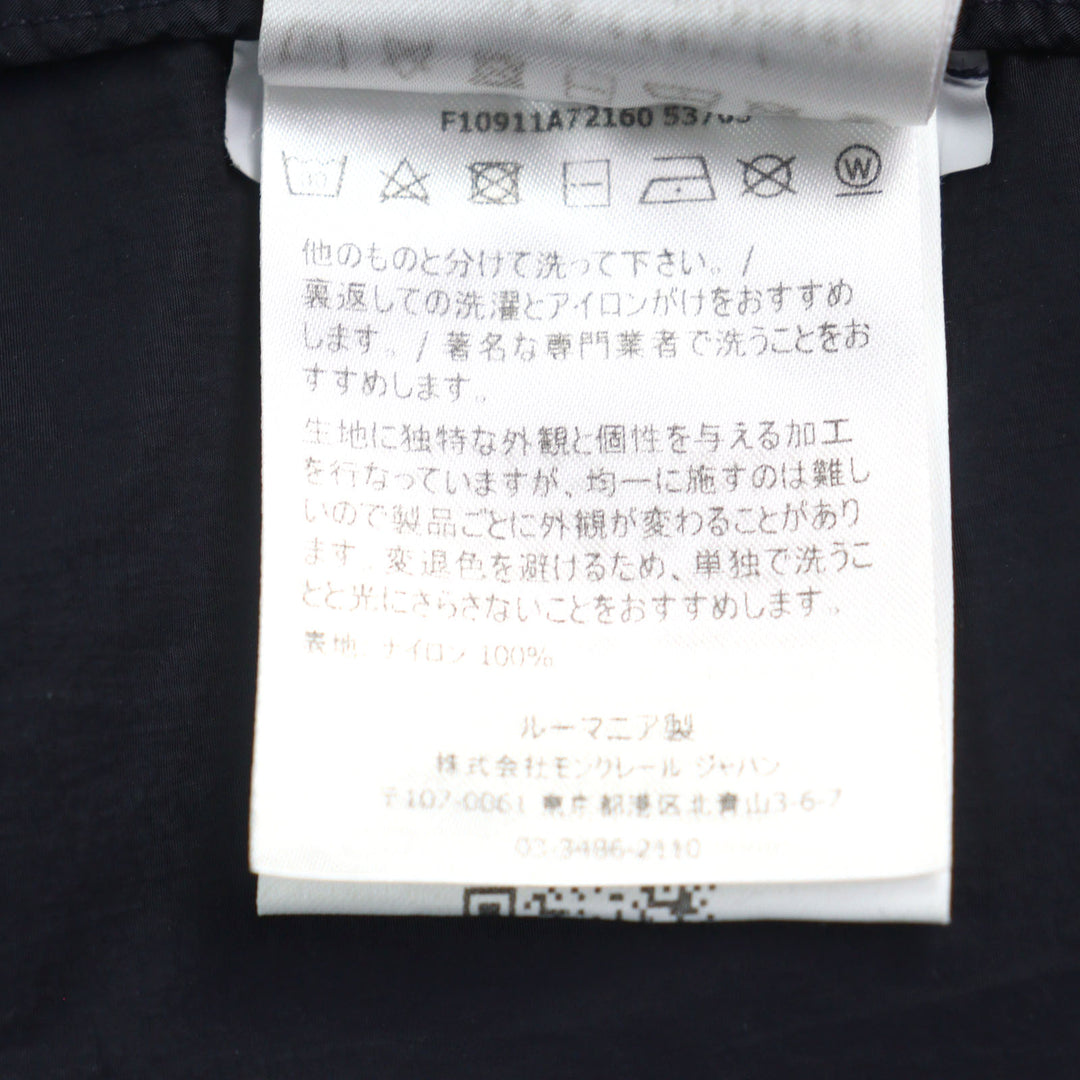 F10911A72160
W
他のものと分けて洗って下さい。/
裏返しての洗濯とアイロンがけをおすすめ
します。/ 著名な専門業者で洗うことをお
すすめします。
生地に独特な外観と個性を与える加工
を行なっていますが、均一に施すのは難し
いので製品ごとに外観が変わることがあり
ます。変退色を避けるため、単独で洗うこ
とと光にさらさないことをおすすめします。
表地: ナイロン 100%
ルーマニア製
株式会社モンクレール ジャパン
〒107-0061 東京都港区北青山3-6-7
03-3486-2110